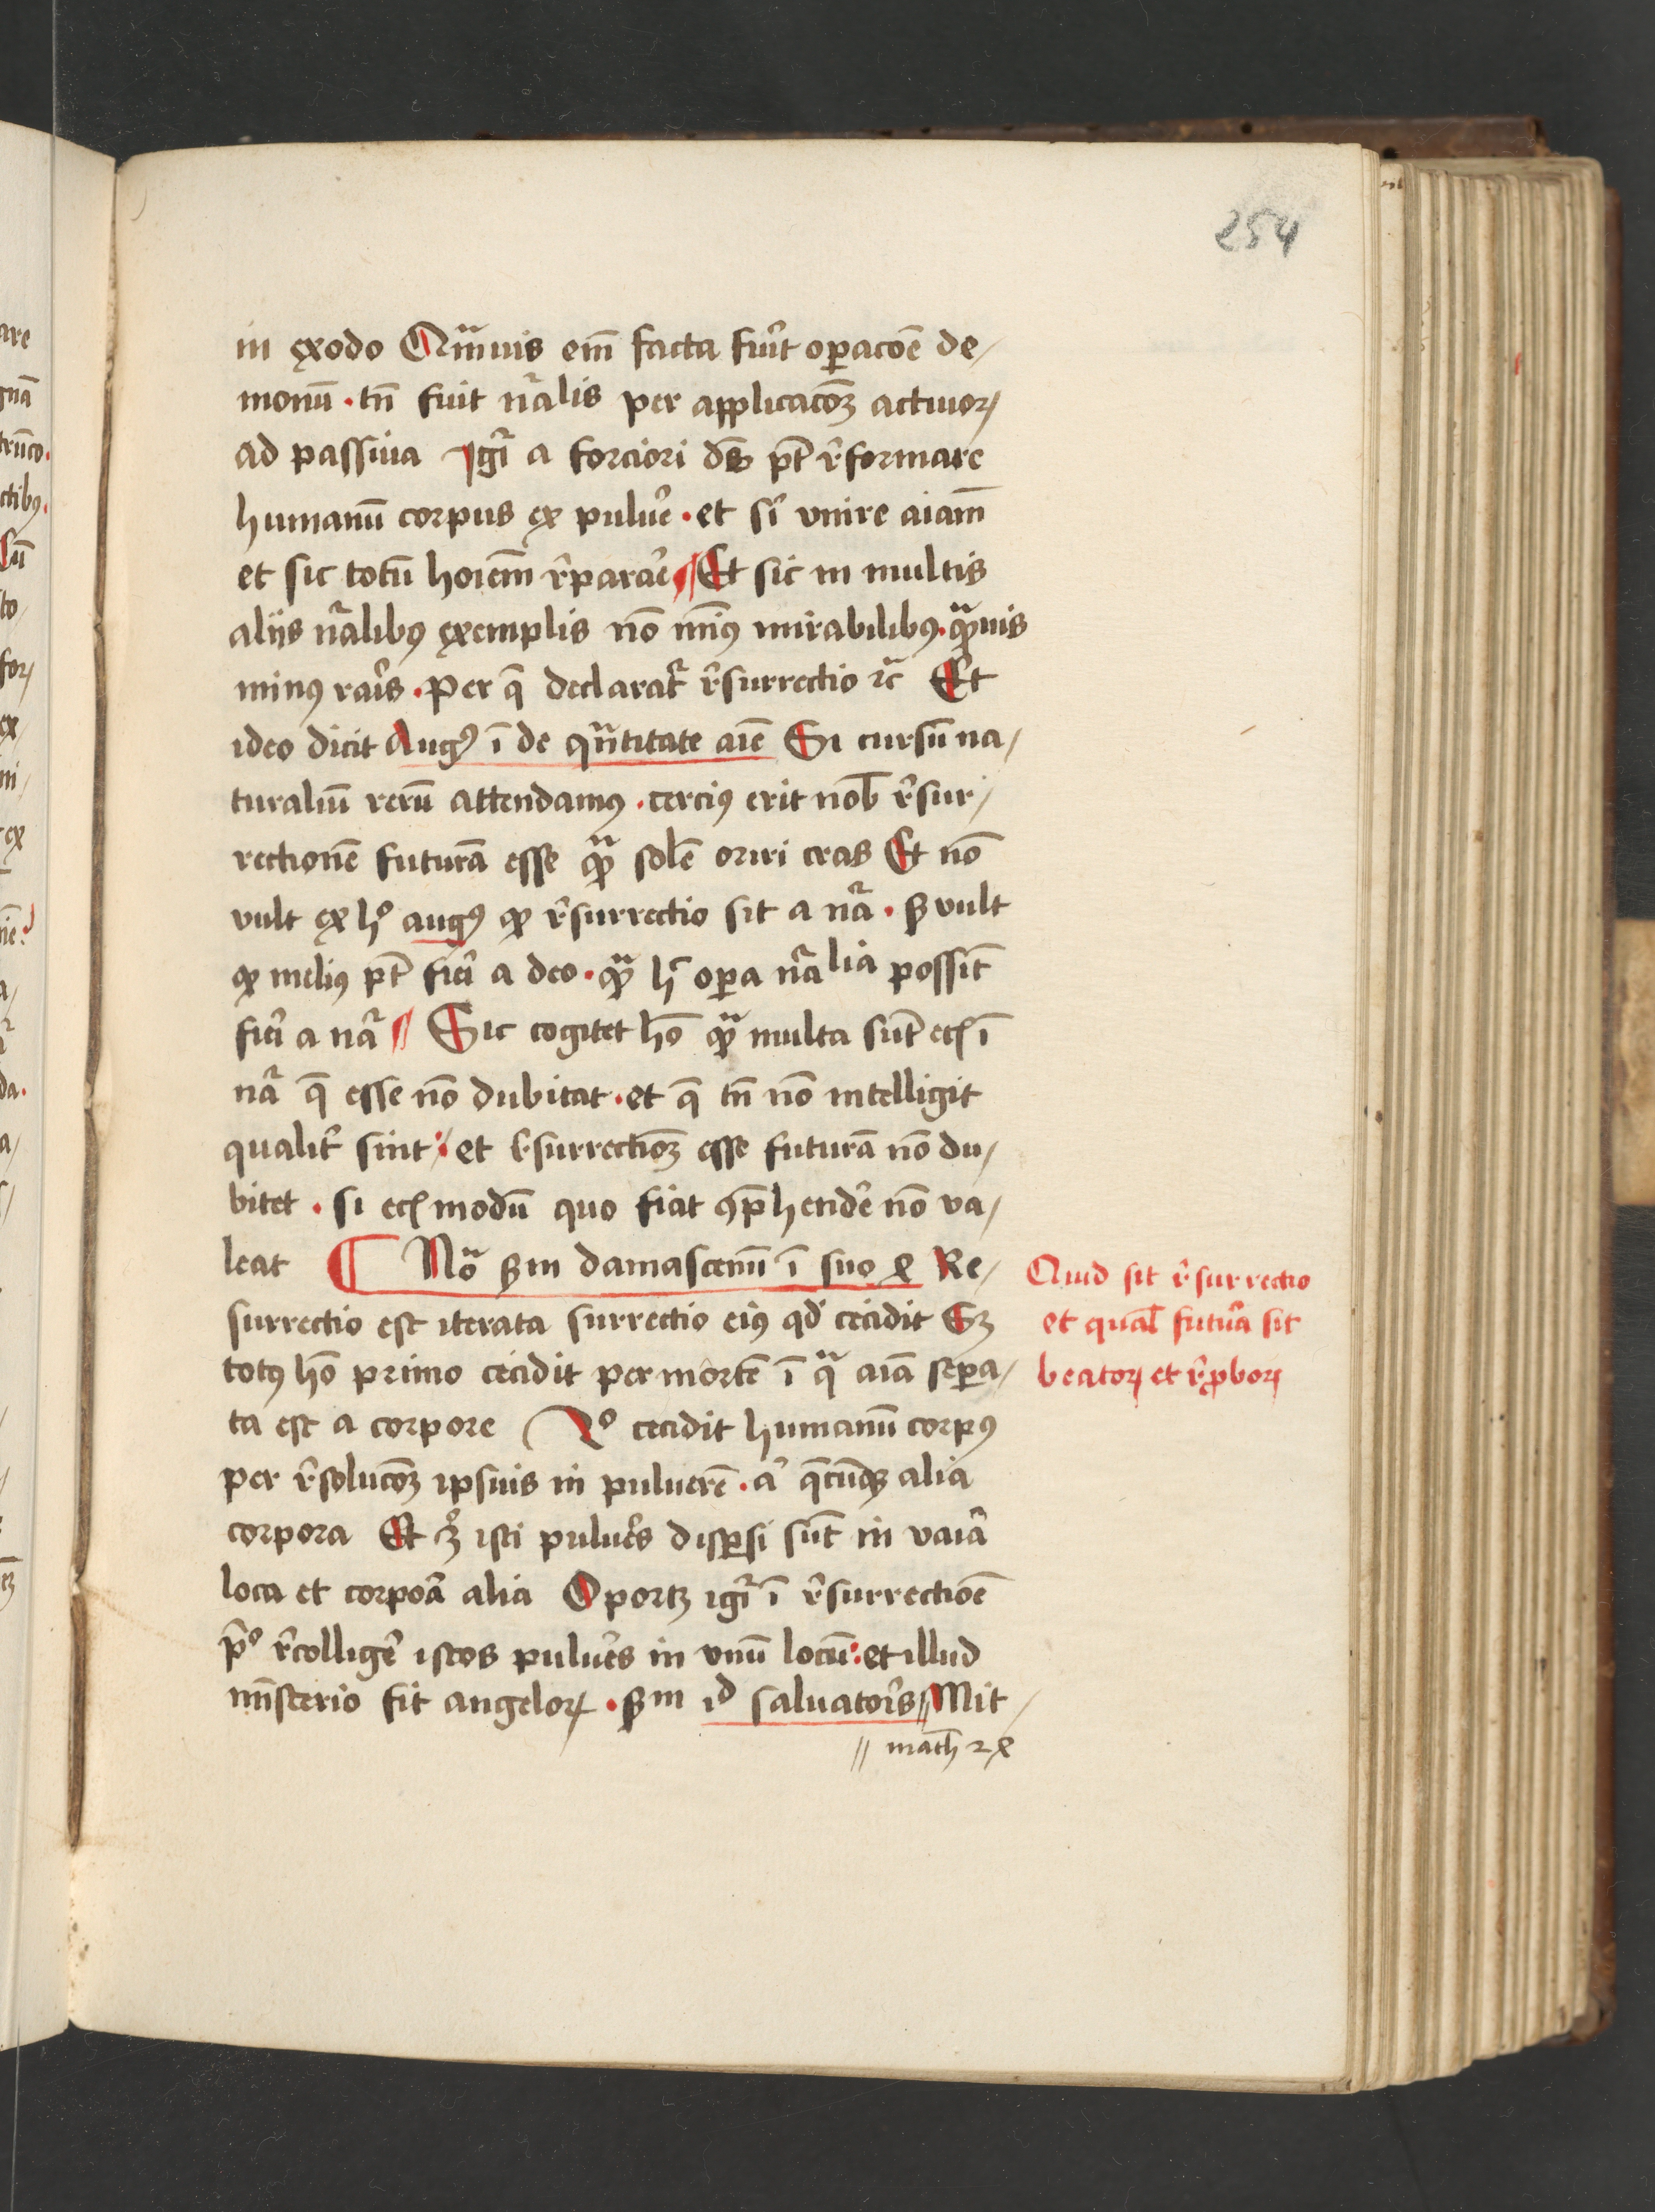 254
in exodo Qm̃uis em̃ facta fuit̉ oꝑacoẽ de⸗
monũ · tñ fuit nãlis per applicacõꝫ actiuoꝝ
ad passiua Igi̇̃ a forciori dẽs pt̃ r̉formare
humanũ corpus ex puluẽ · et si̇̃ vnire aiam̃
et sic totũ hoiem̃ r̉parar̉e Et sic in multis
alijs nãlibꝰ exemplis nõ min̄ꝰ mirabilibꝰ · qͣ̃uis
minꝰ rar̉is · per q̃ declarat̉ r̉surrectio ⁊c̃ Et
ideo dicit Augꝰ ĩ de qñtitate aĩe Si cursũ na⸗
turaliũ rerũ attendamꝰ · cerciꝰ erit nob̃ r̉sur⸗
rectionẽ futurã esse qͣ̃ solẽ oriri cras Et nõ
vult ex hͦ augꝰ ꝙ r̉surrectio sit a nã · sꝫ vult
ꝙ meliꝰ pt̃ fier̉i a deo · qͣ̃ h̃ oꝑa nãlia possint̃
fier̉i a nã Sic cogitet hõ qͣ̃ multa sũt ecꝭ ĩ
nã q̃ esse nõ dubitat · et q̃ tñ nõ intelligit
qualit̉ sint : et r̉surrectioꝫ esse futurã nõ du⸗
bitet · si ecꝭ modũ quo fiat ꝯp̃hender̉e nõ va⸗
leat ¶ Nõ ẞm damascenũ ĩ suo 4 Re⸗
surrectio est iterata surrectio eiꝰ qd̉ cecidit Sꝫ
totꝰ hõ primo cecidit per mortẽ ĩ qͣ aiã seꝑa⸗
ta est a corpore 2º cecidit humanũ corpꝰ
per r̉solucõꝫ ipsius in puluerẽ · a̾ q̃cũqꝫ alia
corpora Et qꝫ isti puluẽs disꝑsi sũt in vaiã
loca et corpoã alia Oportꝫ igi̇̃ ĩ r̉surrectioẽ
p̃º r̉colliger̉e istos puluẽs in vnũ locũ : et illud
mĩsterio fit angeloꝝ · ẞm id saluator̉is // Mit⸗
// math 24
Quid sit r̉surrectio
et qual̃ futur̉a sit
beatoꝝ et r̉ꝓboꝝ